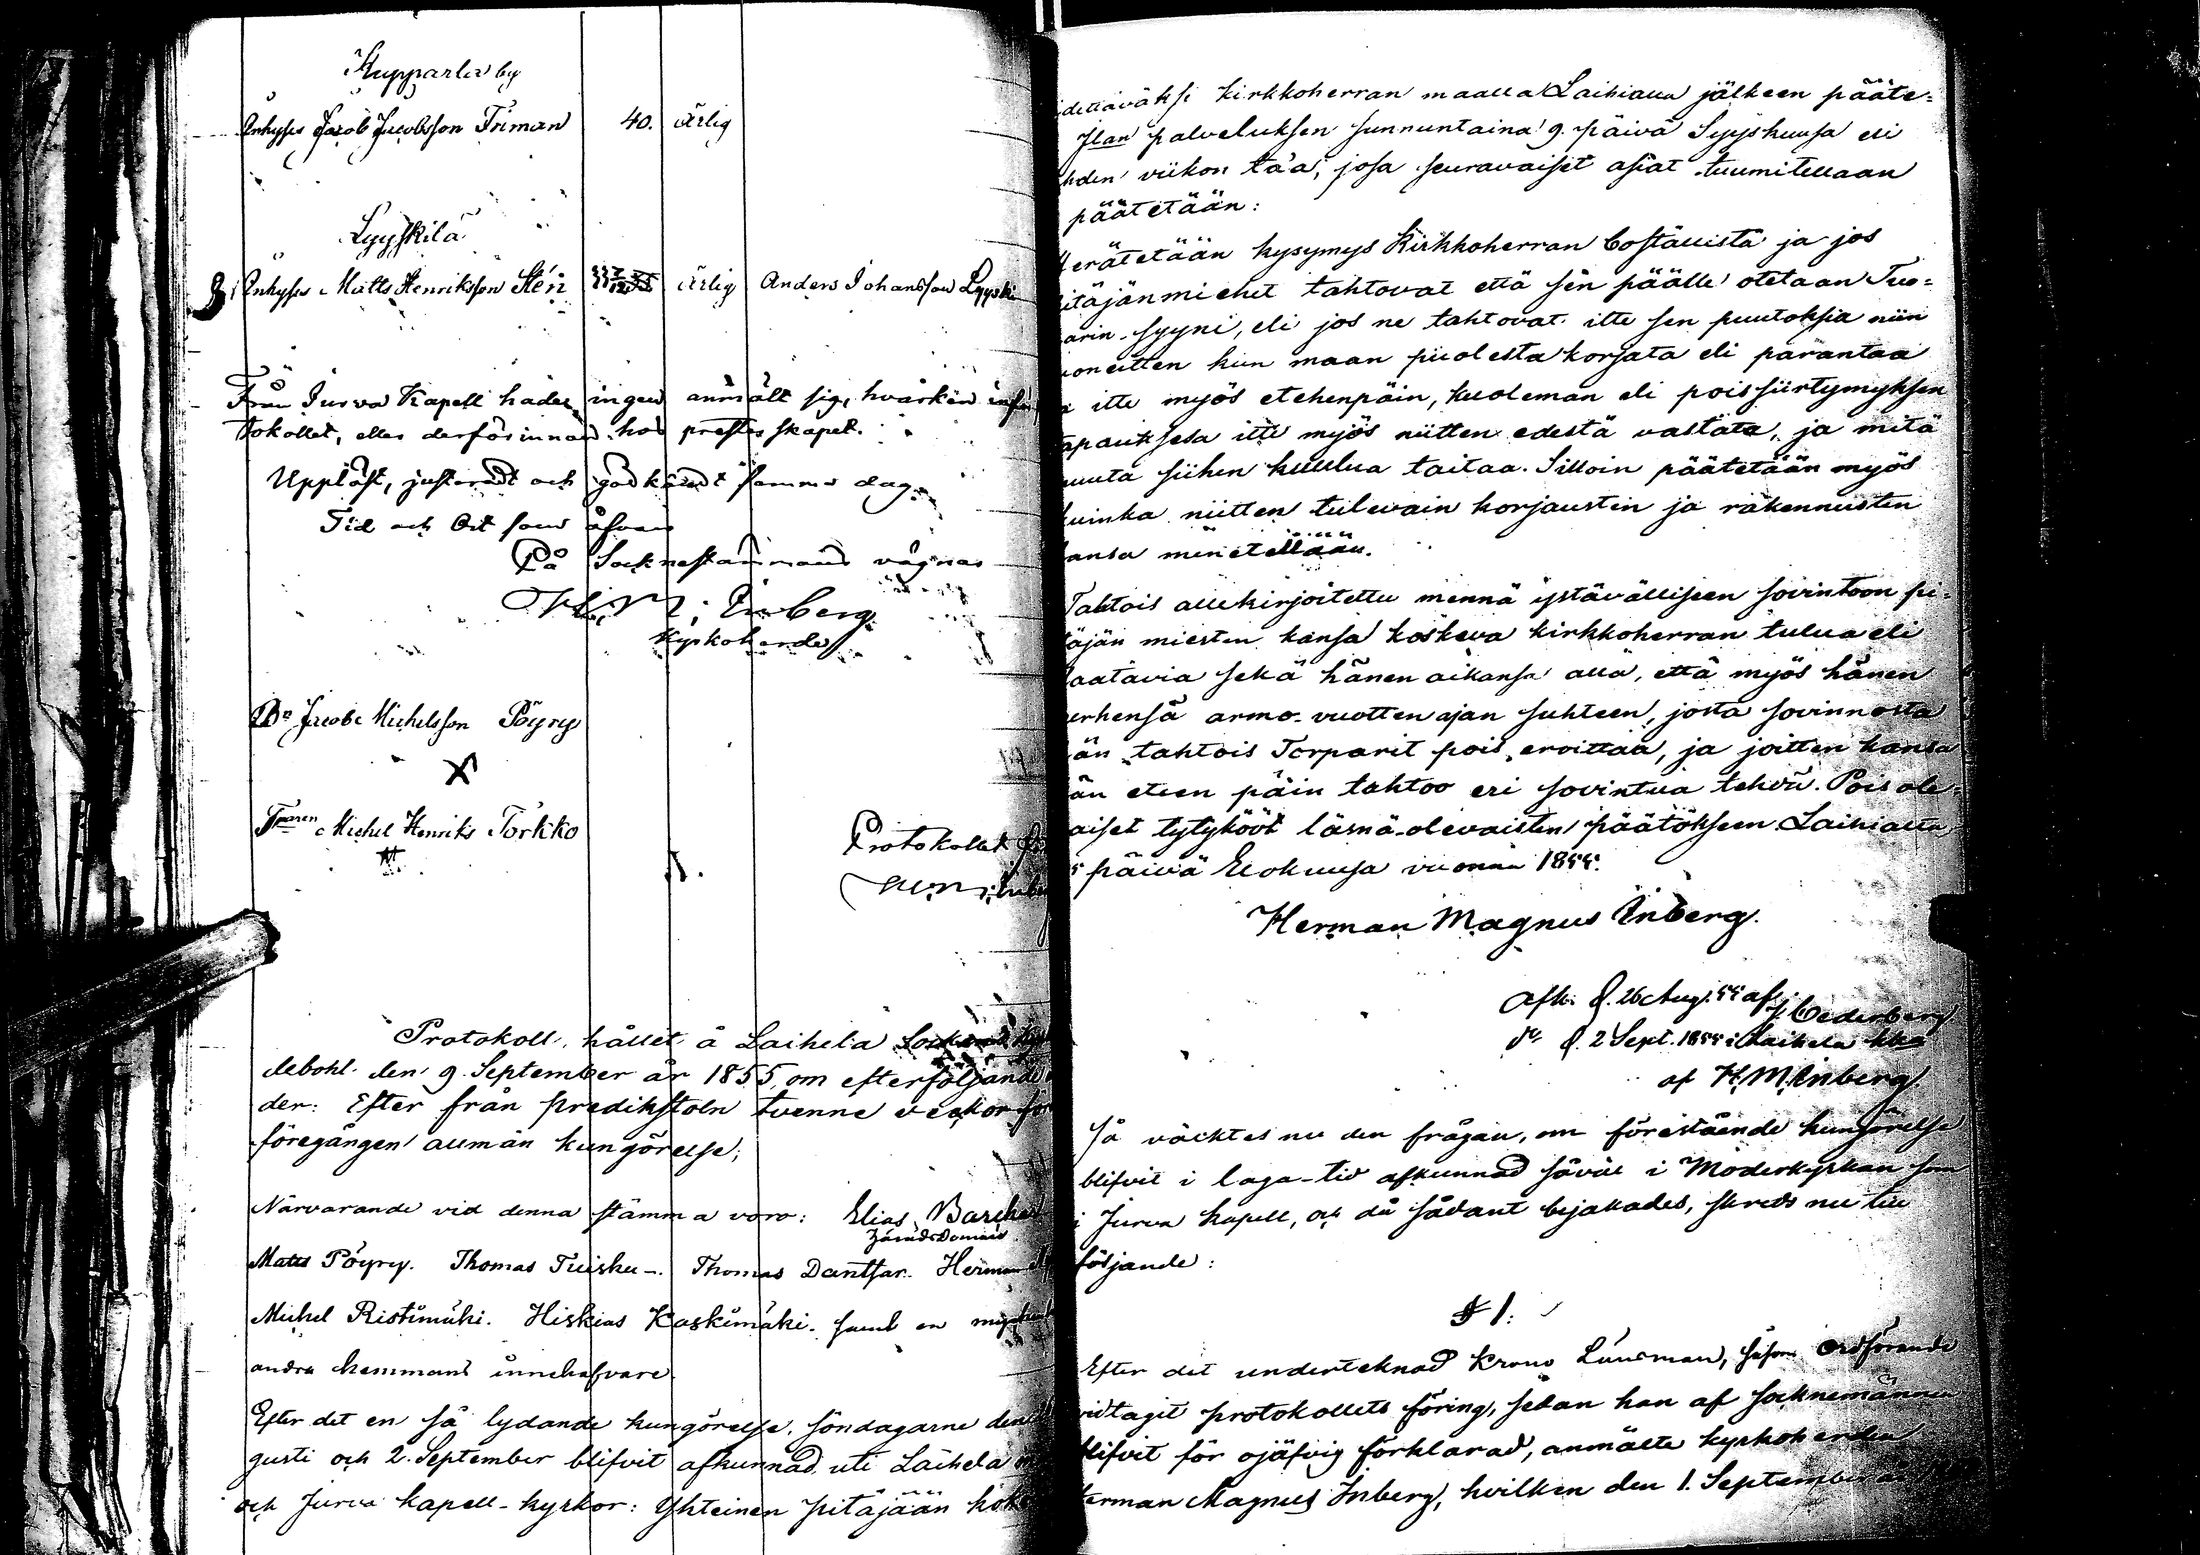 Kupparla by
Inhyses Jacob Jacobsson Friman 40. Ärlig
Lyyskilä
Inhyses Matts Henriksson Stén Ärlig Anders Johansson Lyyski
Från Jurva Kapell hade ingen anmält sig, hvarken inför
tokollet, eller derförinnan hos presterskapet.
Uppläst, justeradt och godkändt samma dag.
Tid och Ort som ofvan
På Socknestämmans vägnar
H. M. Inberg.
Kyrkoherde
Bn Jacob Michelsson Pöyry
Michel Henriks Torkko
Protokollet
Protokoll, hållet å Laihela Sockens
debohl den 9. September år 1855, om efterföljande
der: Efter från predikstoln tvenne veckor
föregången allmän kungörelse;
Närvarande vid denna stämma voro: Elias
Häradsdomare
Matts Pöyry. Thomas Tuisku -. Thomas Dantsar. Herman
Michel Ristimäki. Hiskias Kaskimäki. samt en
andra hemmans innehafvare.
Efter det en så lydande kungörelse, söndagarne den
gusti och 2. September blifvit afkunnad uti Laihela
och Jurva kapell-kyrkor: Yhteinen pitäjään koko
dettäväksi kirkkoherran maalla Laihialla jälkeen pääte=
Jlan palveluksen sunnuntaina 9. päivä Syyskuusa eli
hden viikon tä'ä, josa seuravaiset asiat tuumitellaan
päätetään:
Herätetään kysymys Kirkkoherran Boställistä ja jos
itäjänmiehet tahtovat että sen päälle otetaan Tuo=
arin-syyni, eli jos ne tahtovat itte sen puutoksia niin
uoneitten kun maan puolesta korjata eli parantaa
itte myös etehenpäin, kuoleman eli poissiirtymyksen
apauksesa itte myös niitten edestä vastata, ja mitä
muuta siihen kuulua taitaa. Silloin päätetään myös
kuinka niitten tulevain korjaustin ja rakennusten
kansa menetellään.
Tahtois allekirjoitettu mennä ystävälliseen sovintoon pi=
täjän miesten kansa koskeva kirkkoherran tuloa eli
saatavia sekä hänen aikansa alla, että myös hänen
perhensä armo-vuotten ajan suhteen, josta sovinnosta
än tahtois Torparit pois eroittaa, ja joitten kansa
än eteen päin tahtoo eri sovintua tehdä. Pois ole=
aiset tytykööt läsnä-olevaisten päätökseen. Laihialla
päivä Elokuusa vuonna 1855.
Herman Magnus Inberg.
Afk. d. 26 Aug. 55 af Cederberg
do d. 2 Sept. 1855 i Laihela kka
af H M Inberg.
Så väcktes nu den frågan, om förestående kungörelse
blifvit i laga-tid afkunnad såväl i Moderkyrkan som
i Jurva kapell, och då sådant bejakades, skreds nu till
följande:
§ 1.
Efter det undertecknad Krono Länsman, såsom Ordförande
vidtagit protokollets föring, sedan han af socknemännen
blifvit för ojäfvig förklarad, anmälte kyrkoherden
Herman Magnus Inberg, hvilken den 1. September